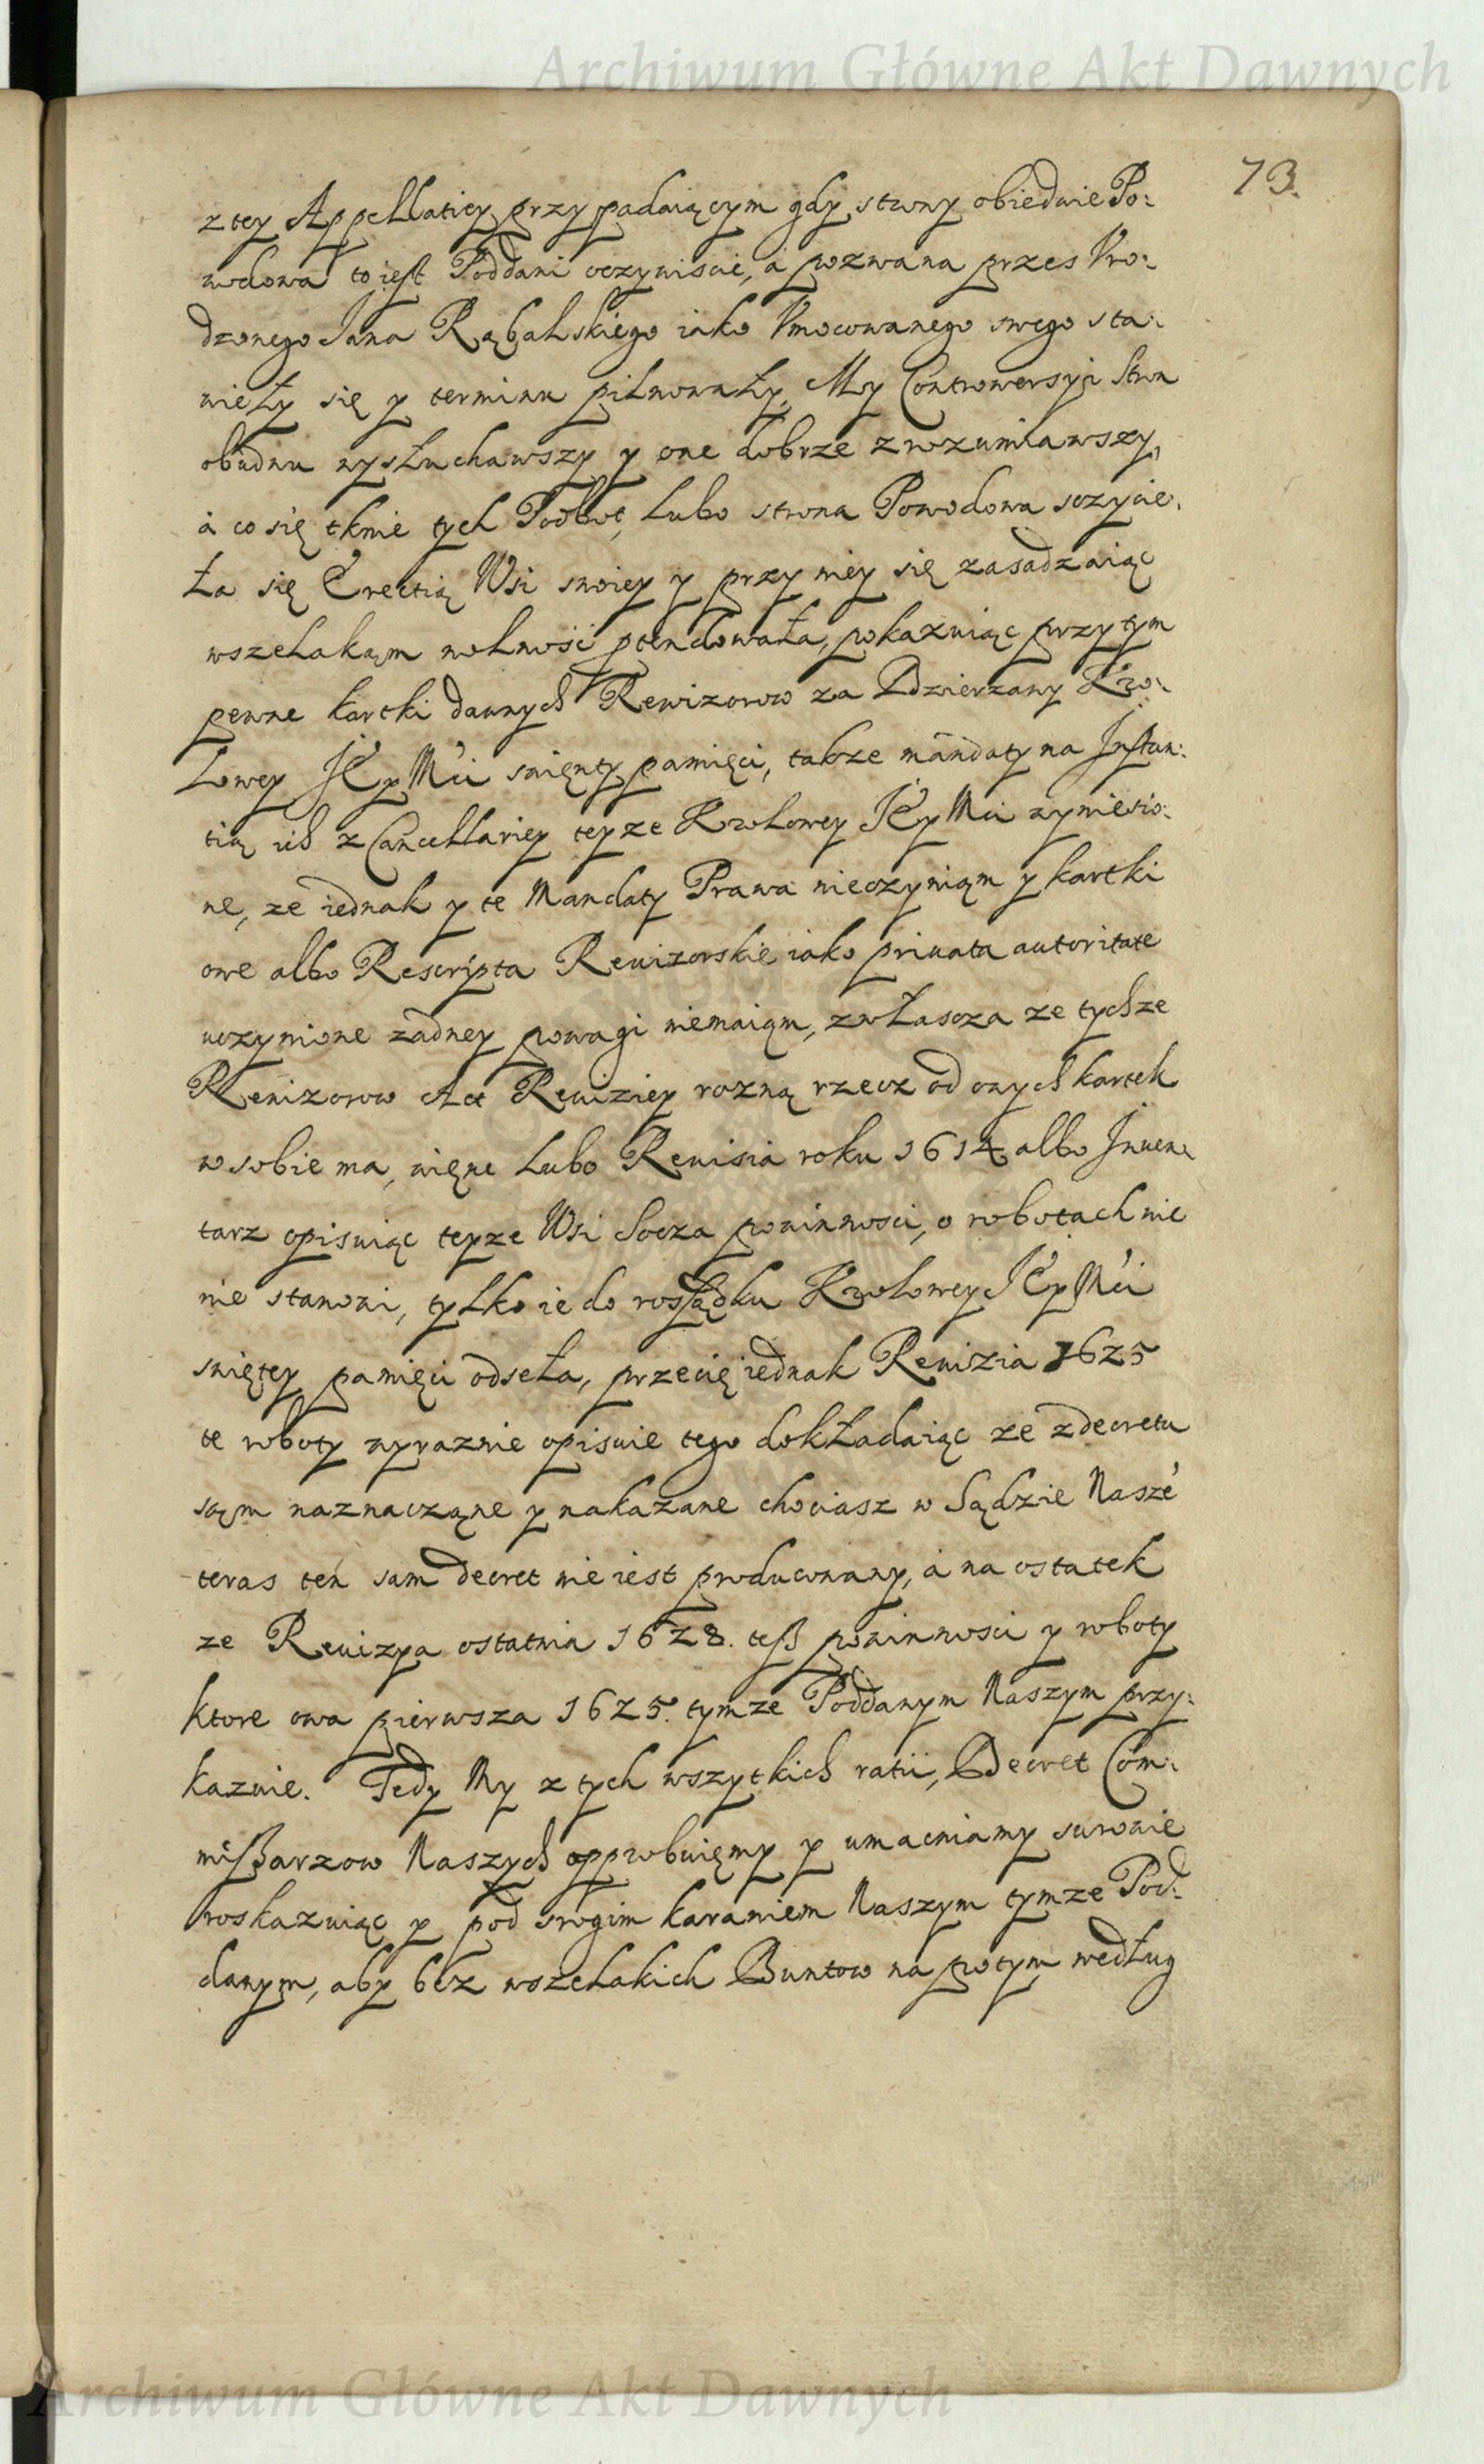 Archiwum Główne Akt Dawnych
73.
z tey Appellatiey przypadaiącym gdy strony obiedwie Po:
wodowa to iest Poddani oczywiscie, a pozwana przes Vro:
dzonego Jana Rąbalskiego iako Vmocowanego swego sta:
wieły się y terminu pilnowały, My Controwersyi stron
obudwu wysłuchawszy y one dobrze zrozumiawszy,
a co się tknie tych Robot, lubo strona Powodowa sczycie:
ła się Erectią Wsi swoiey y przy niey się zasadzaiąc
wszelakąm wolność ptendowała, pokazuiąc przytym
pewne kartki dawnych Rewizorow za Dzierzawy Kro:
lowey JEy Mci swięty pamięci, także mandaty na Instan:
tią ich z Cancellariey teyze Krolowey JEy Mci wyniesio:
ne, ze iednak y te Mandaty Prawa nieczyniąm y kartki
owe albo Rescripta Rewizorskie iako priuata autoritate
uczynione zadney powagi niemaiąm, zwłascza ze tychze
Rewizorow Act Rewiziey rozną rzecz od onych kartek
w sobie ma, więne lubo Rewisia roku 1614 albo Inuen:
tarz opisuiąc teyze Wsi Socza powinnosci, o robotach nic
nie stanowi, tylko ie do rossądku Krolowey JEy Mci
swiętey pamięci odseła, przecię iednak Rewizia 1625
te roboty wyraznie opisuie tego dokładaiąc ze z decretu
sąm naznacząne y nakazane chociasz w Sądzie Nasze
teras ten sam decret nie iest producowany, a na ostatek
ze Rewizya ostatnia 1628. tesz powinnosci y roboty
ktore owa pierwsza 1625. tymze Poddanym Naszym przy:
kazuie. Tedy My z tych wszytkich ratii, Decret Com:
missarzow Naszych approbuięmy y umacniamy surowie
roskazuiąc y pod srogim karaniem Naszym tymze Pod:
danym, aby bez wszelakich Buntow na potym według
Archiwum Główne Akt Dawnych